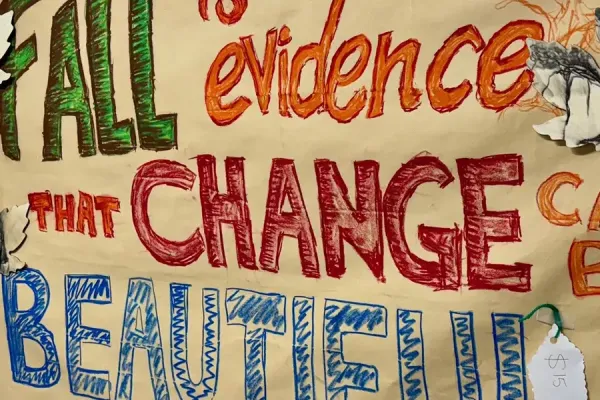 FALL is evidence
THAT CHANGE
BEAUTIFUL
$15